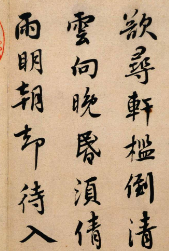 欲尋軒檻倒清
雲向晚昏須倩
雨明朝却待入